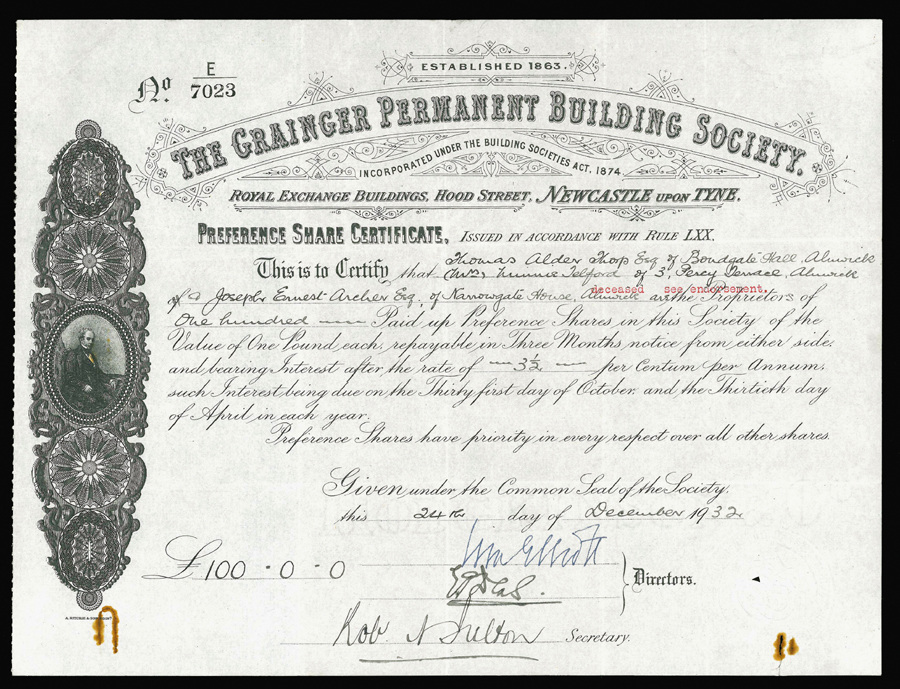 ESTABLISHED 1863.
No. E 7023
THE GRAINGER PERMANENT BUILDING SOCIETY.
INCORPORATED UNDER THE BUILDING SOCIETIES ACT, 1874.
ROYAL EXCHANGE BUILDINGS, HOOD STREET, NEWCASTLE UPON TYNE.
PREFERENCE SHARE CERTIFICATE, ISSUED IN ACCORDANCE WITH RULE LXX.
Thomas Alder Thorp Esq of Bondgate Hall, Alnwick
This is to Certify that (Mrs) Minnie Telford of 3, Percy Terrace, Alnwick
deceased see endorsement.
of & Joseph Ernest Archer Esq, of Narrowgate House, Alnwick are the Proprietors of
One hundred Paid up Preference Shares in this Society of the
Value of One Pound each, repayable in Three Months notice from either side,
and bearing Interest after the rate of 3½ per Centum per Annum,
such Interest being due on the Thirty first day of October, and the Thirtieth day
of April in each year.
Preference Shares have priority in every respect over all other shares.
Given under the Common Seal of the Society,
this 24th day of December 1932
£100 . 0 . 0
Elliott
Directors.
Rob Secretary.